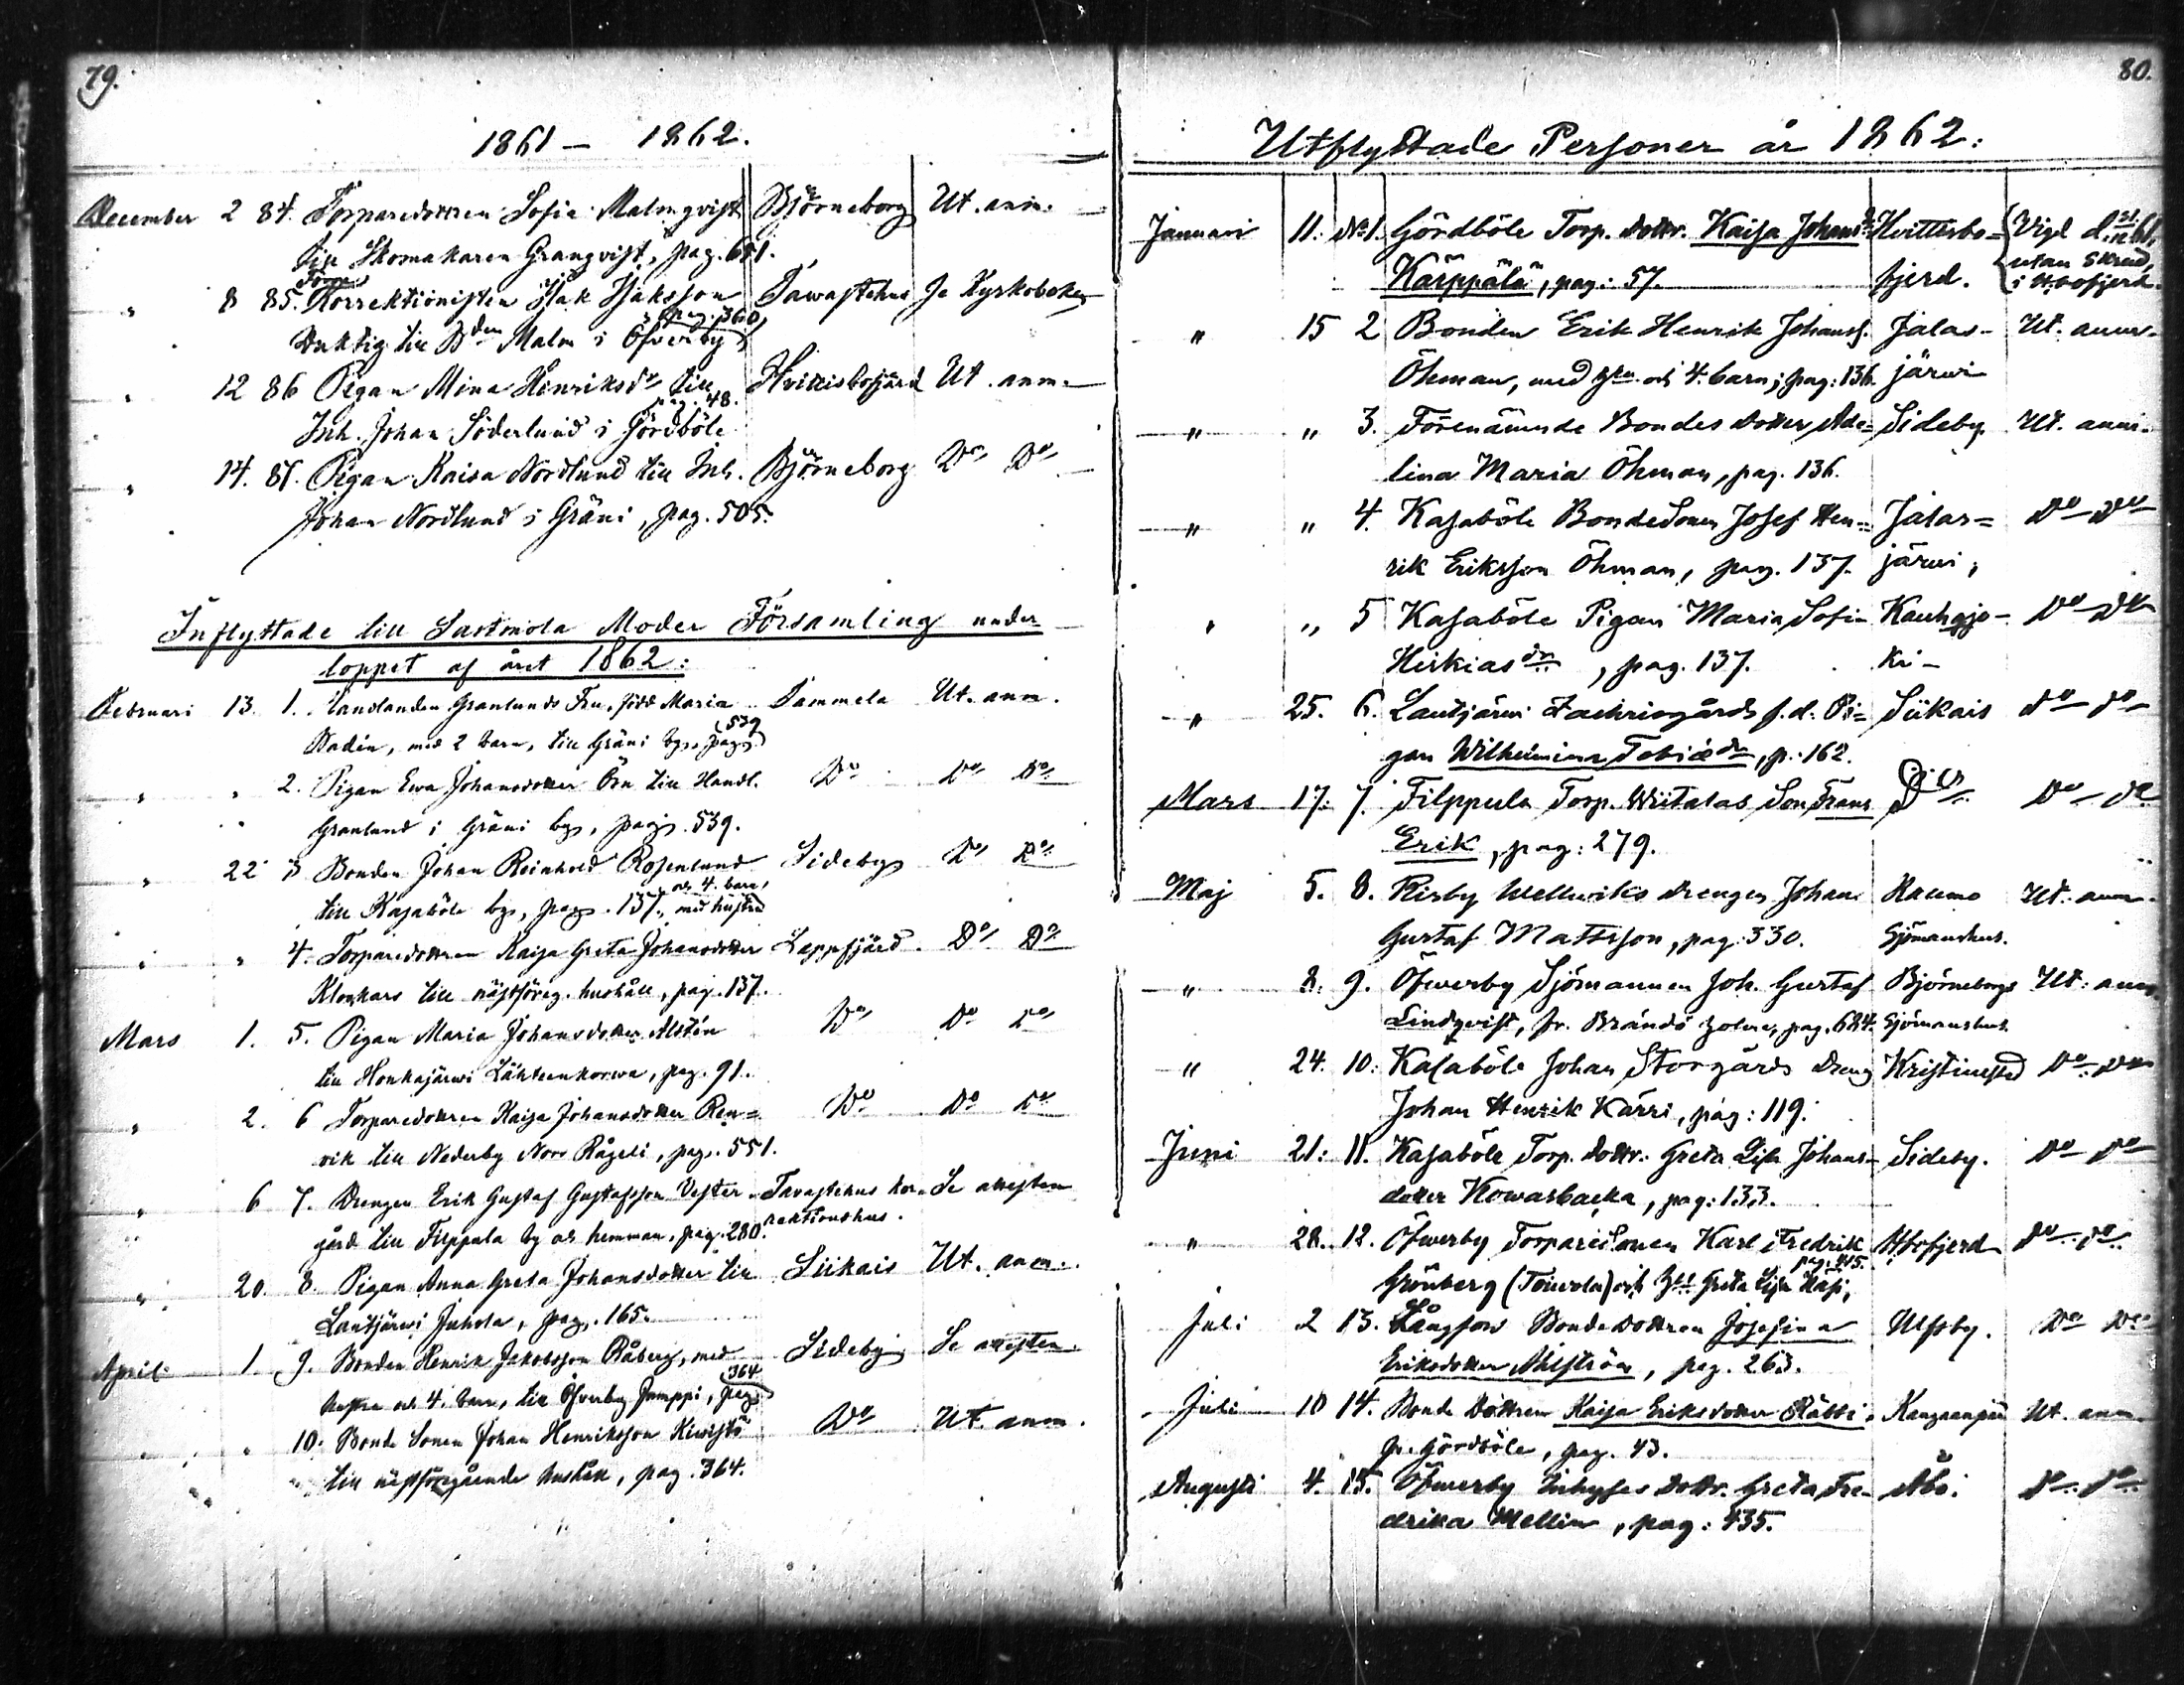 79.
1861 – 1862.
December 2 84. Torparedottren Sofia Malmqvist Björneborg Ut. anm.
till Skomakaren Granqvist, pag. 651.
Förre
„ 8 85. Korrektionisten Isak Isaksson Tawastehus Se Kyrkoboken
pag. 360,
Duktig till Bden Malm i Öfverby
„ 12 86 Pigan Mina Henriksdr till Hvittisbofjärd Ut. anm.
pag. 48.
Inh. Johan Söderlund i Gördböle
„ 14. 87. Pigan Kaisa Nordlund till Inh. Björneborg Do Do
Johan Nordlund i Gräni, pag. 505.
Inflyttade till Sastmola Moder Församling under
loppet af året 1862:
Februari 13. 1. Handlanden Granlunds Fru, född Maria Tammela Ut. anm.
539
Nadin, med 2 barn, till Gräni by, pag.
„ „ 2. Pigan Ewa Johansdotter Örn till Handl. Do Do Do
Granlund i Gräni by, pag. 539.
„ 22 3 Bonden Johan Reinhold Rosenlund Sideby Do Do
och 4. barn,
till Kasaböle by, pag. 137, med hustru
„ „ 4. Torparedottren Kaisa Greta Johansdotter Lappfjärd. Do Do
Klonkars till nästföreg. hushåll, pag. 137.
Mars 1. 5. Pigan Maria Johansdotter Alstén Do Do Do
till Honkajärwi Lähteenkorwa, pag. 91.
„ 2. 6 Torparedottren Kaisa Johansdotter Ren= Do Do Do
vik till Nederby Norr Rågeli, pag. 551.
„ 6 7. Drengen Erik Gustaf Gustafsson Vester= Tavastehus kor= Se attesten
gård till Filppula by och hemman, pag. 280. rektionshus.
„ 20. 8. Pigan Anna Greta Johansdotter till Siikais Ut. anm.
Lautjärwi Juhola, pag. 165.
April 1. 9. Bonden Henrik Jakobsson Råberg, med Sideby Se attesten.
364
hustru och 4. barn, till Öfverby Jamppi, pag.
„ „ 10. Bonde Sonen Johan Henriksson Kiwistö Do Ut. anm.
till nästföregående hushåll, pag. 364.
80.
Utflyttade Personer år 1862:
Januari 11. No 1. Gördböle Torp. dottr. Kaisa Johansdr Hvittisbo= Vigd d. 21/12 61,
Kärppälä, pag: 57. fjerd. utan Skrud, i Hbofjerd.
„ 15 2 Bonden Erik Henrik Johanss. Jalas- Ut. anm.
Öhman, med hru och 4. barn, pag: 136. järwi
„ „ 3. Förenämnde Bondes dotter Ade= Sideby. Ut. anm.
lina Maria Öhman, pag. 136.
„ „ 4. Kasaböle BondeSonen Josef Hen= Jalas= Do Do
rik Eriksson Öhman, pag. 137. järwi,
„ „ 5 Kasaböle Pigan Maria Sofia Kauhajo- Do Do
Heikiasdr, pag. 137. ki-
„ 25. 6. Lautjärwi Zachrisgårds f.d. Pi= Siikais Do Do
gan Wilhelmina Tobiædr, p. 162.
Mars 17. 7. Filppula Torp. Wiitalas Son Frans Do Do Do
Erik, pag: 279.
Maj 5. 8. Risby Wellwiks drengen Johan Raumo Ut. anm.
Gustaf Mattsson, pag. 330. Sjömanshus.
„ 8. 9. Öfwerby Sjömannen Joh. Gustaf Björneborgs Ut. anm.
Lindqvist, fr. Brändö, pag. 684. Sjömanshus.
„ 24. 10. Kasaböle Johan Storgårds dreng Kristinestad Do Do
Johan Henrik Kärri, pag: 119.
Juni 21. 11. Kasaböle Torp. dottr. Greta Lisa Johans- Sideby. Do Do
dotter Kowasbacka, pag: 133.
„ 28. 12. Öfwerby Torparesonen Karl Fredrik Hbofjerd Do Do
Grönberg (Toiwola) och Greta Lisa
Juli 2 13. Långfors Bondedottren Josefina Ulfsby. Do Do
Eriksdotter Ahlström, pag. 263.
Juli 10 14. Bonde Dottren Kaisa Eriksdotter Rätti, Kangaanpää Ut. anm.
fr. Gördböle, pag. 43.
Augusti 4. 15. Öfwerby Inhyses dottr. Greta Fre- Åbo. Do Do
drika Mellin, pag: 435.